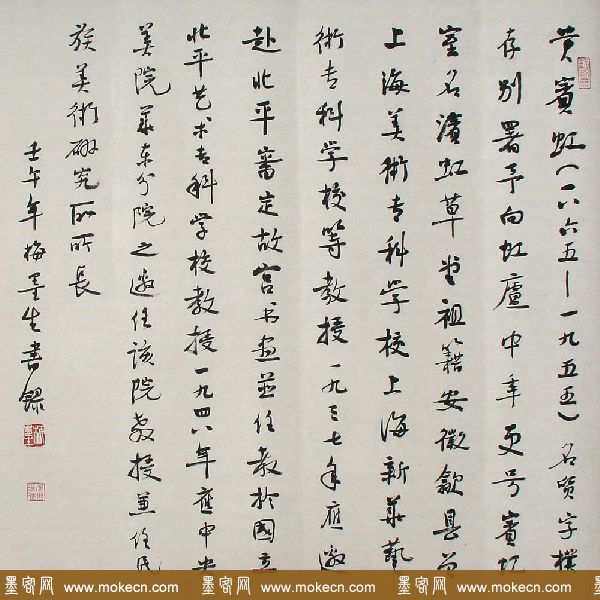 黄賓虹(一八六五—一九五五)名質字樸
存别署予向虹廬中年更号賓虹
室名濱虹草堂祖籍安徽歙县曾
上海美術专科学校上海新華藝
術专科学校等教授一九三七年應邀
赴北平審定故宫书画並任教於國立
北平艺术专科学校教授一九四八年應中央
美院華东分院之邀任該院教授並任民
族美術研究所所長
壬午年梅墨生書錄
墨客网 www.mokecn.com 墨客网 www.mokecn.com 墨客网 www.mokecn.com